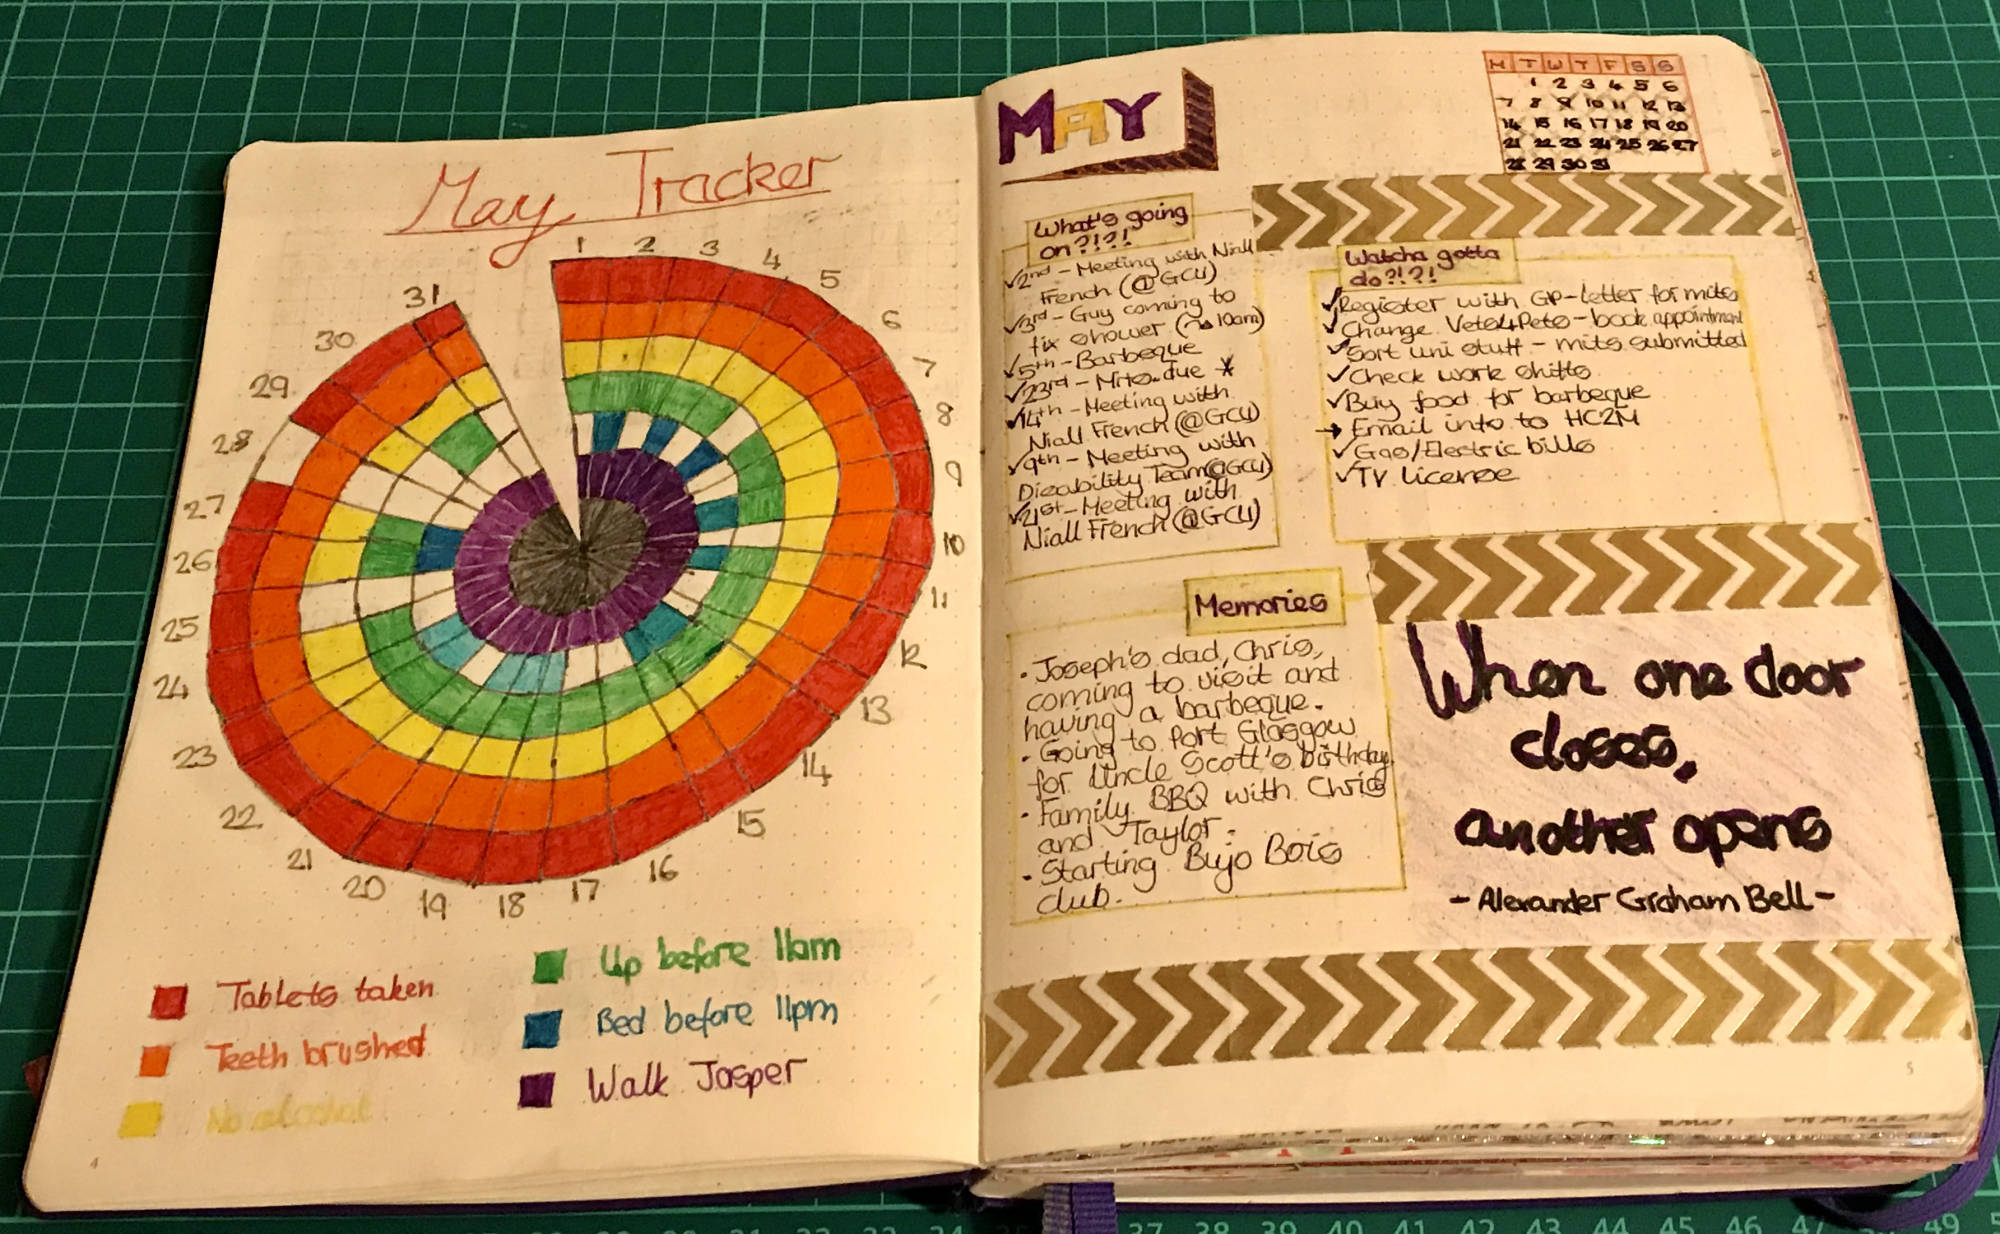 May Tracker
1 2 3 4 5 6 7 8 9 10 11 12 13 14 15 16 17 18 19 20 21 22 23 24 25 26 27 28 29 30 31
Tablets taken
Teeth brushed
No alcohol
Up before 11am
Bed before 11pm
Walk Jasper
4
MAY
M T W T F S S
1 2 3 4 5 6
7 8 9 10 11 12 13
14 15 16 17 18 19 20
21 22 23 24 25 26 27
28 29 30 31
What's going
on?!?!
✓2nd - Meeting with Niall
French (@GCU)
✓3rd - Guy coming to
fix shower (~10am)
✓5th - Barbeque
✓23rd - Mits due *
✓14th - Meeting with
Niall French (@GCU)
✓9th - Meeting with
Disability Team(@GCU)
✓21st - Meeting with
Niall French (@GCU)
Watcha gotta
do?!?!
✓Register with GP - letter for mits
✓Change Vets4Pets - book appointment
✓Sort uni stuff - mits submitted
✓Check work shifts
✓Buy food for barbeque
→ Email into to HC2M
✓Gas/Electric bills
✓TV license
Memories
• Joseph's dad, Chris,
coming to visit and
having a barbeque.
• Going to Port Glasgow
for Uncle Scott's birthday
• Family BBQ with Chris
and Taylor.
• Starting Bujo Bois
club.
When one door
closes,
another opens
- Alexander Graham Bell -
5
37 38 39 40 41 42 43 44 45 46 47 49